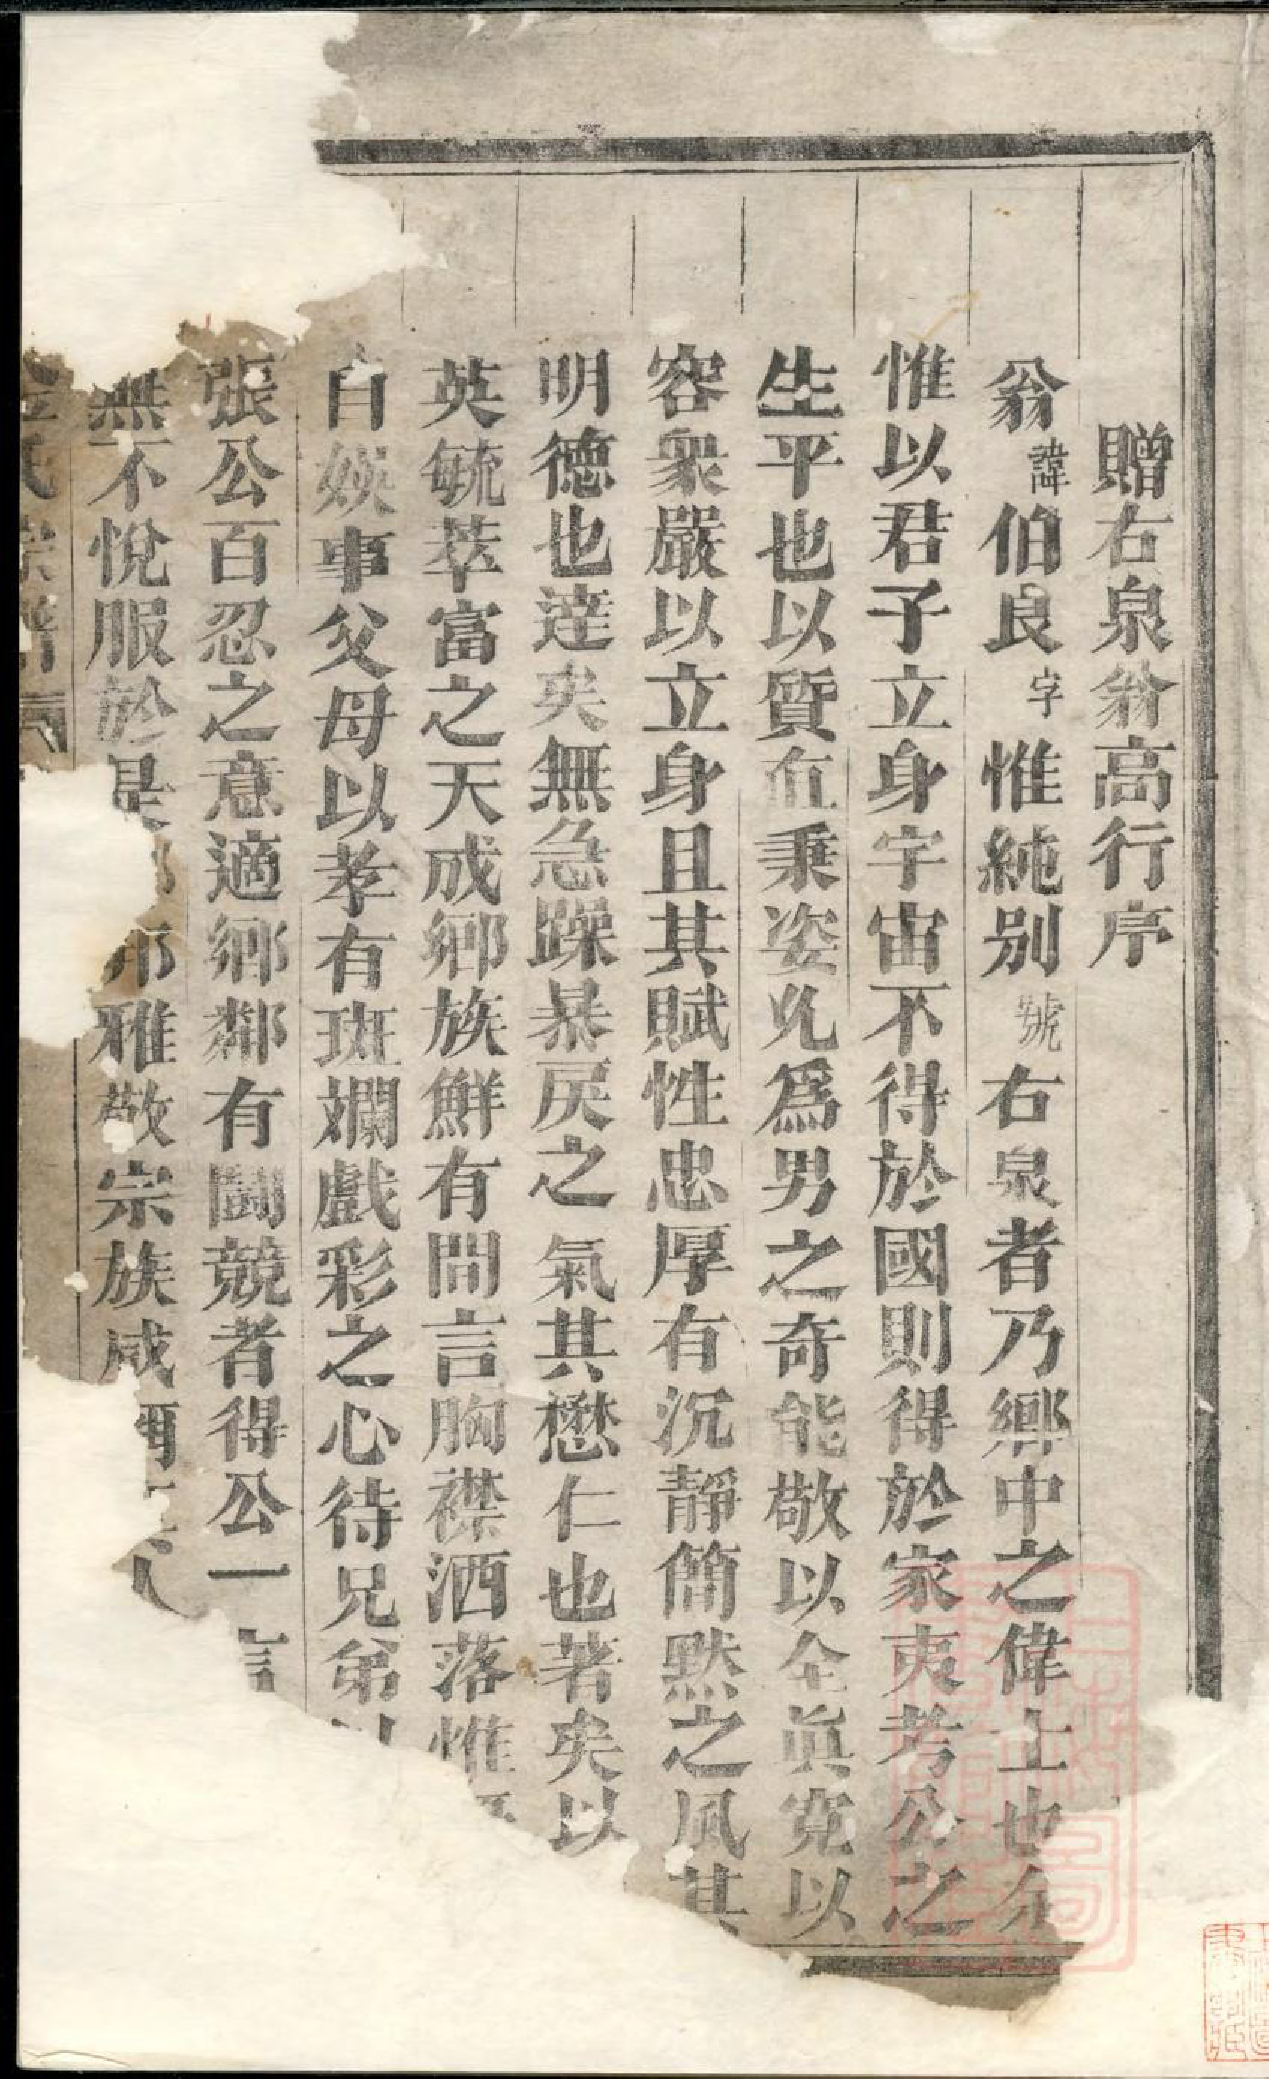 贈右泉翁高行序
翁諱伯良字惟純别號右泉者乃鄉中之偉士也余
惟以君子立身宇宙不得於國則得於家夷考公之
生平也以質直秉姿允爲男之奇能敬以全眞寬以
容衆嚴以立身且其賦性忠厚有沉靜簡默之風其
明德也達矣無急躁暴戾之氣其懋仁也著矣以
英毓萃富之天成鄉族鮮有間言胸襟洒落惟
自娛事父母以孝有斑斕戲彩之心待兄弟以
張公百忍之意適鄉鄰有鬪競者得公一言
無不悅服於是邦雅敬宗族咸
氏宗譜